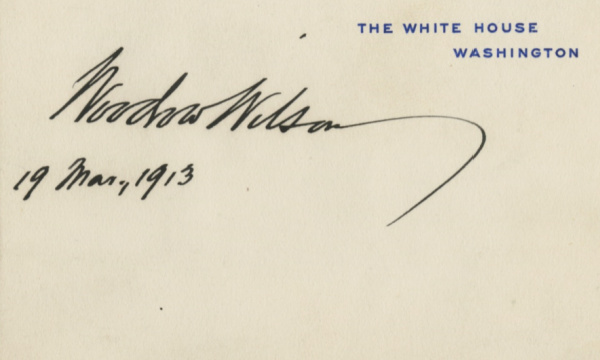 THE WHITE HOUSE
WASHINGTON
Woodrow Wilson
19 Mar., 1913